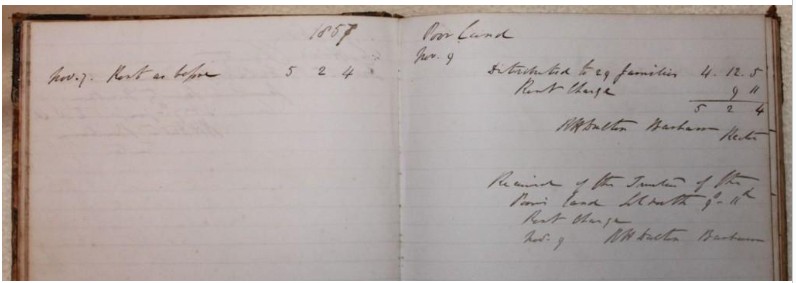 1857
Nov. 7. Rent as before 5 2 4
Poor Land
Nov. 9
Distributed to 29 families 4. 12. 5
Rent Charge 9 11
5 2 4
Rector
Received of the Trustees of the
Poor's Land 9s 11d
Rent Charge
Nov. 9